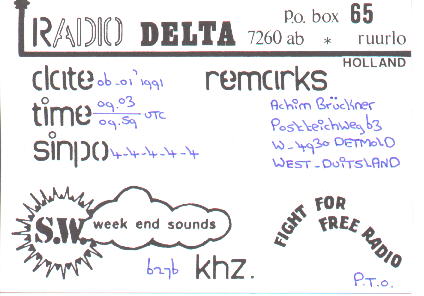 RADIO DELTA P.o. box 65
7260 ab * ruurlo
HOLLAND
date 06-01'1991 remarks
time 09.03
09.59 UTC
sinpo 4-4-4-4-4
Achim Brückner
Postteichweg 63
W-4930 DETMOLD
WEST-DUITSLAND
S.W. week end sounds
FIGHT FOR
FREE RADIO
6276 khz.
P.T.O.